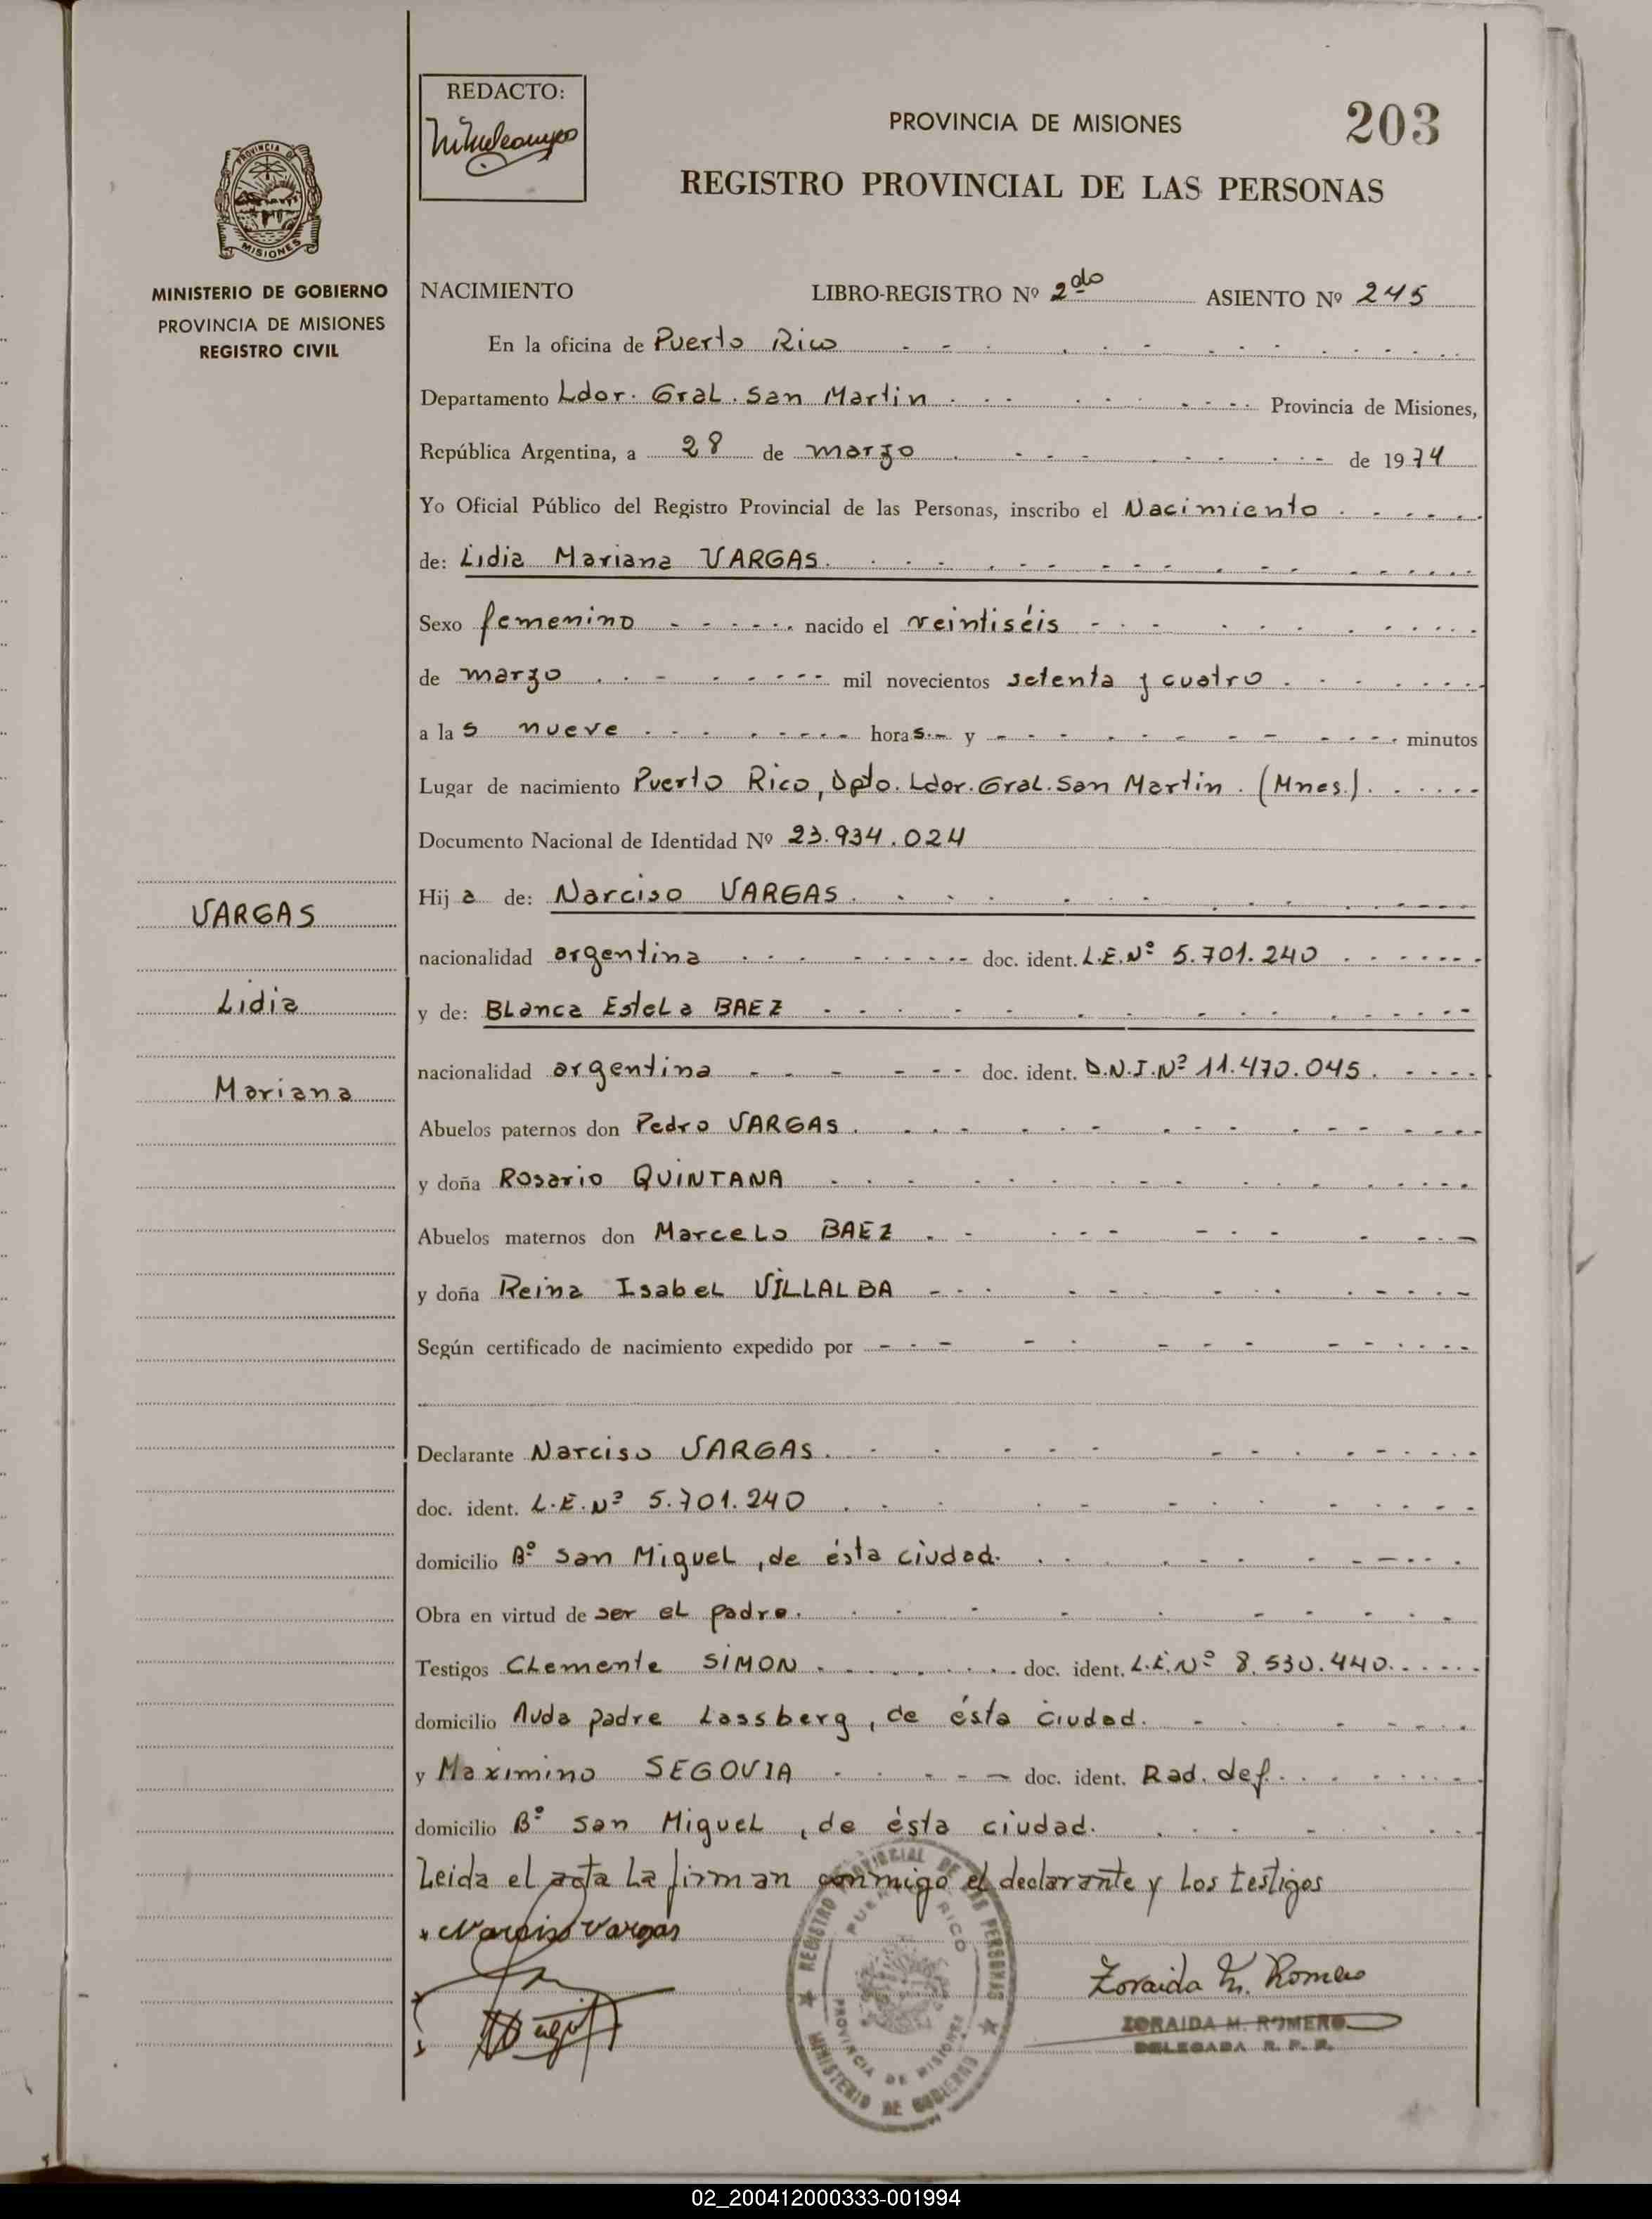 REDACTO:
PROVINCIA DE MISIONES
203
REGISTRO PROVINCIAL DE LAS PERSONAS
PROVINCIA DE
MISIONES
MINISTERIO DE GOBIERNO
PROVINCIA DE MISIONES
REGISTRO CIVIL
NACIMIENTO LIBRO-REGISTRO Nº 2do ASIENTO Nº 245
En la oficina de Puerto Rico
Departamento Ldor. Gral. San Martin Provincia de Misiones,
República Argentina, a 28 de marzo de 1974
Yo Oficial Público del Registro Provincial de las Personas, inscribo el Nacimiento
de: Lidia Mariana VARGAS.
Sexo femenino nacido el veintiséis
de marzo mil novecientos setenta y cuatro
a las nueve horas y minutos
Lugar de nacimiento Puerto Rico, Dpto. Ldor. Gral. San Martin. (Mnes.).
Documento Nacional de Identidad Nº 23.934.024
Hija de: Narciso VARGAS.
nacionalidad argentina doc. ident. L.E.Nº 5.701.240
y de: Blanca Estela BAEZ
nacionalidad argentina doc. ident. D.N.I.Nº 11.470.045.
Abuelos paternos don Pedro VARGAS.
y doña Rosario QUINTANA
Abuelos maternos don Marcelo BAEZ
y doña Reina Isabel VILLALBA
Según certificado de nacimiento expedido por
Declarante Narciso VARGAS.
doc. ident. L.E.Nº 5.701.240
domicilio Bº San Miguel, de ésta ciudad.
Obra en virtud de ser el padre.
Testigos Clemente SIMON doc. ident. L.E.Nº 8.530.440.
domicilio Avda padre Lassberg, de ésta ciudad.
y Maximino SEGOVIA doc. ident. Rad. def.
domicilio Bº San Miguel, de ésta ciudad.
Leida el acta la firman conmigo el declarante y los testigos
Narciso Vargas
Zoraida M. Romero
ZORAIDA M. ROMERO
DELEGADA R. P. P.
REGISTRO PROVINCIAL DE LAS PERSONAS
PUERTO RICO
PROVINCIA DE MISIONES
MINISTERIO DE GOBIERNO
VARGAS
Lidia
Mariana
02_200412000333-001994